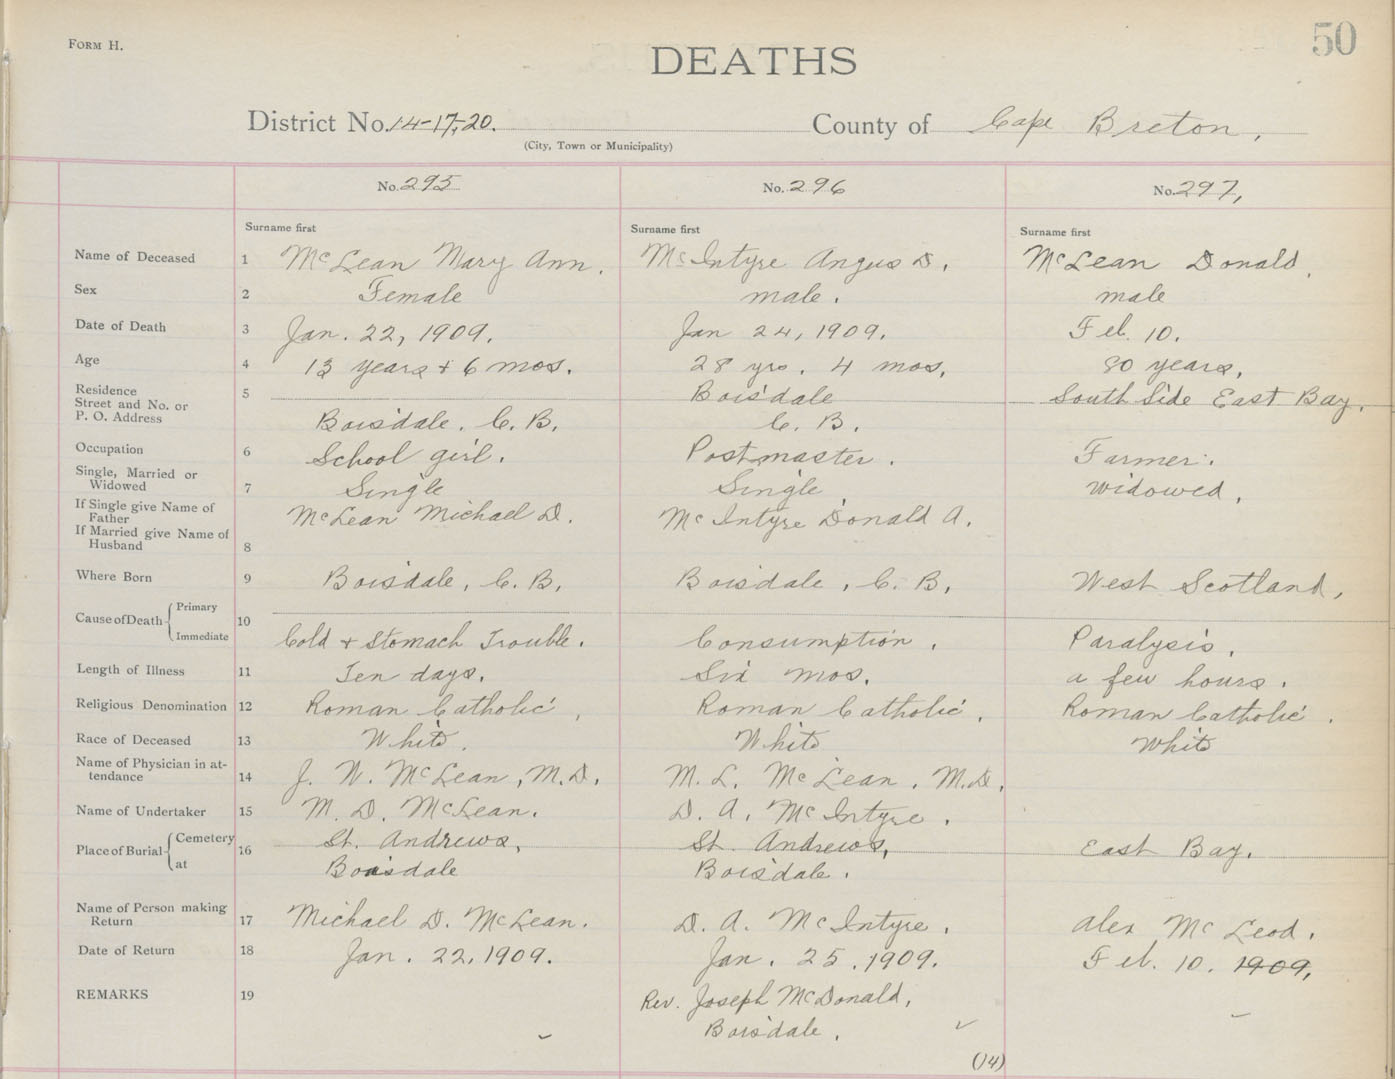 50
FORM H.
DEATHS
District No. 14-17-20. County of Cape Breton,
(City, Town or Municipality)
No. 295 No. 296 No. 297,
Surname first Surname first Surname first
Name of Deceased 1 McLean Mary Ann. McIntyre Angus D. McLean Donald.
Sex 2 Female male. male
Date of Death 3 Jan. 22, 1909. Jan 24, 1909. Feb. 10.
Age 4 13 years + 6 mos. 28 yrs. 4 mos. 80 years,
Residence 5 Boisdale South Side East Bay.
Street and No. or
P. O. Address Boisdale, C. B. C. B.
Occupation 6 School girl. Postmaster. Farmer.
Single, Married or
Widowed 7 Single Single, Widowed,
If Single give Name of McLean Michael D. McIntyre Donald A.
Father
If Married give Name of
Husband 8
Where Born 9 Boisdale, C. B. Boisdale, C. B, West Scotland,
Primary
Cause of Death 10
Immediate Cold + Stomach Trouble. Consumption. Paralysis.
Length of Illness 11 Ten days. Six mos. a few hours.
Religious Denomination 12 Roman Catholic, Roman Catholic, Roman Catholic.
Race of Deceased 13 White. White White
Name of Physician in at-
tendance 14 J. W. McLean, M.D. M. L. McLean, M.D.
Name of Undertaker 15 M. D. McLean. D. A. McIntyre.
Cemetery St. Andrews, St. Andrews,
Place of Burial 16 East Bay.
at Boisdale Boisdale.
Name of Person making
Return 17 Michael D. McLean. D. A. McIntyre. Alex McLeod.
Date of Return 18 Jan. 22, 1909. Jan. 25. 1909. Feb. 10. 1909,
REMARKS 19 Rev. Joseph McDonald,
Boisdale.
(14)